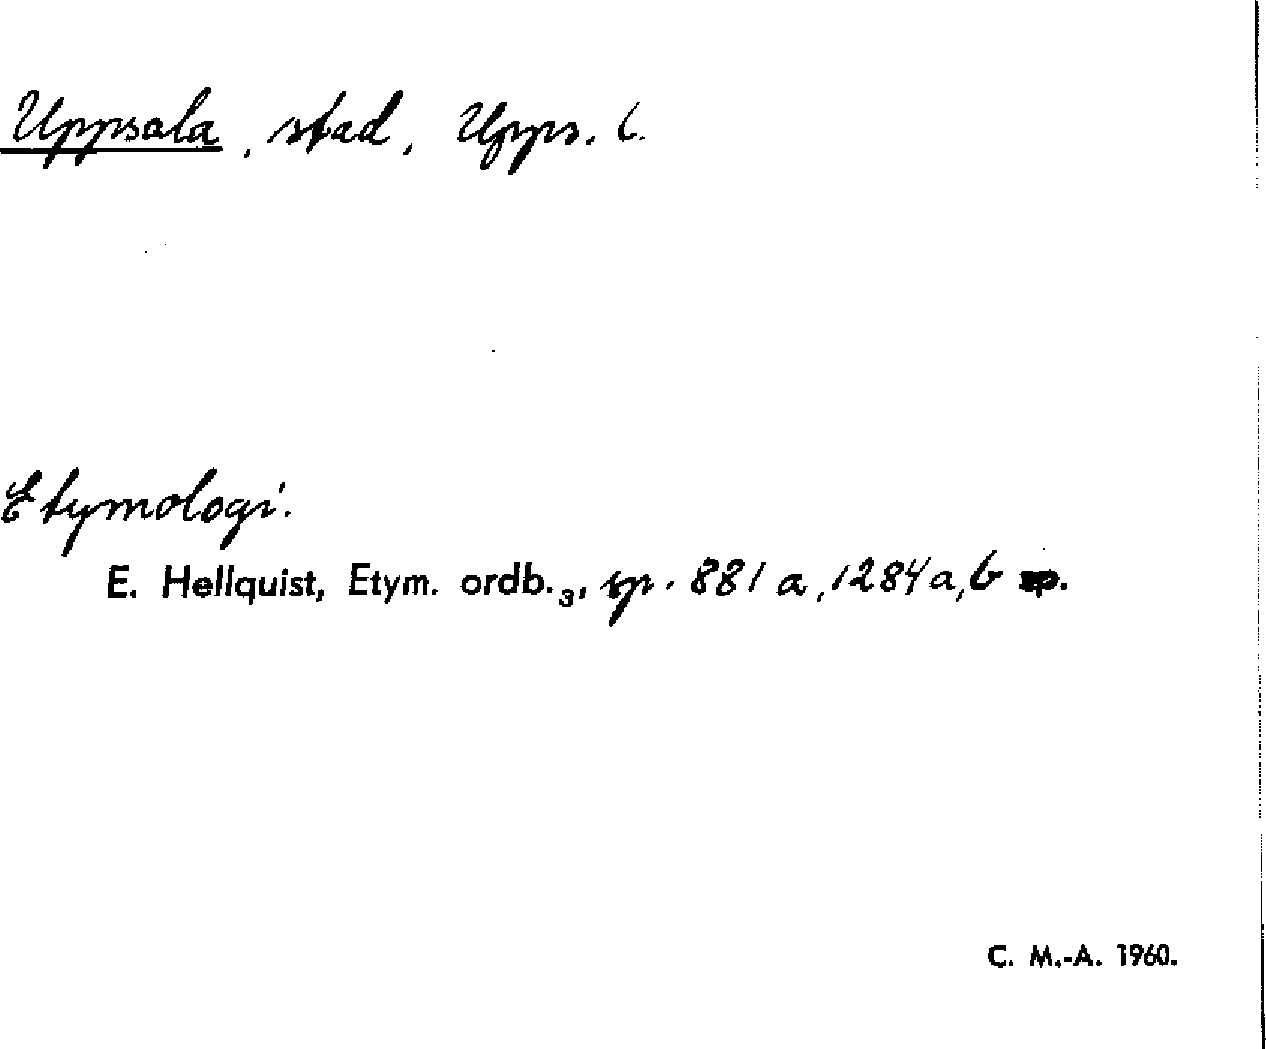 Uppsala, stad, Upps. l.
Etymologi.
E. Hellquist, Etym. ordb.₃, sp. 881 a, 1284 a, b
C. M.-A. 1960.